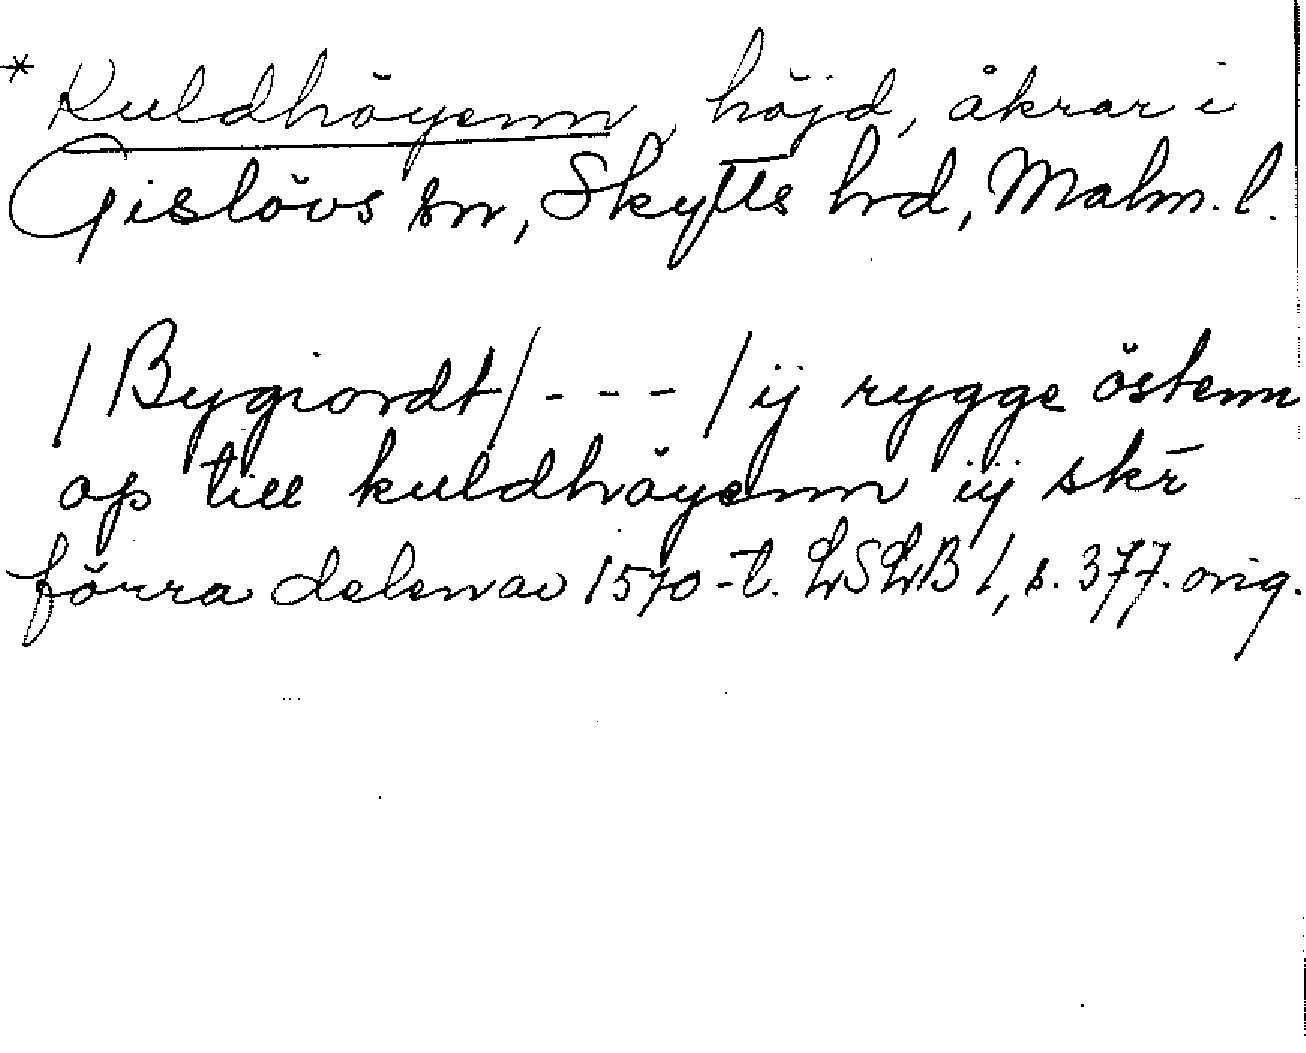 * Kuldhöyenn, höjd, åkrar i
Gislövs sn, Skytts hd, Malm. l.
/Bygiordt/ - - - /ij rygge östenn
op till kuldhöyenn iij skr̄
förra delen av 1570-t. LSLB 1, s. 377. orig.